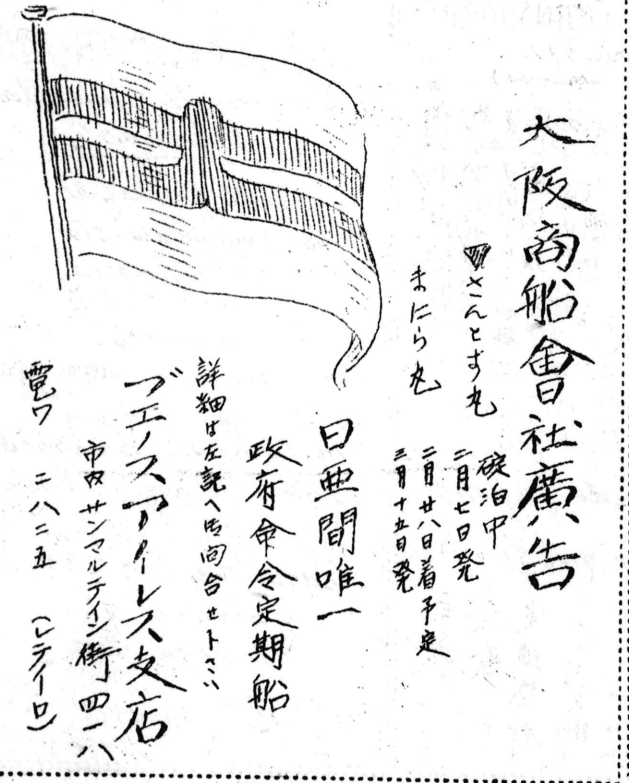 大阪商船會社廣告
さんとす丸
碇泊中
二月七日発
まにら丸
二月廿八日着予定
三月十五日発
日亜間唯一
政府命令定期船
詳細は左記へ御問合せ下さい
ブエノスアイレス支店
市内サンマルテイン街四一八
電ワ 二八二五 (レテイロ)